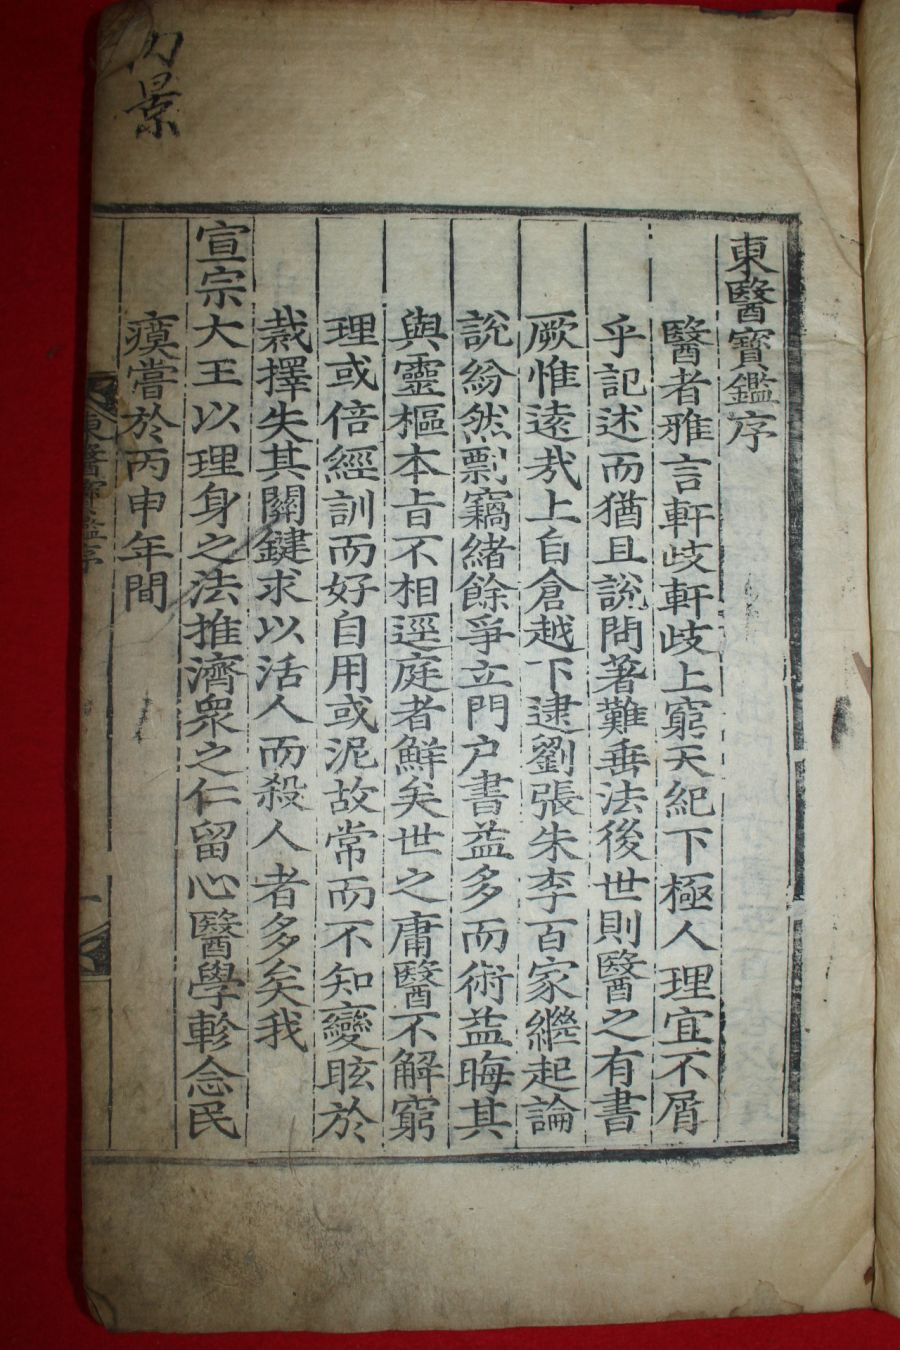 內景
東醫寶鑑序
醫者雅言軒歧軒歧上窮天紀下極人理宜不屑
乎記述而猶且說問著難垂法後世則醫之有書
厥惟遠㢤上自倉越下逮劉張朱李百家繼起論
說紛然剽竊緖餘爭立門户書益多而術益晦其
與靈樞本旨不相逕庭者鮮矣世之庸醫不解窮
理或倍經訓而好自用或泥故常而不知變眩於
裁擇失其關鍵求以活人而殺人者多矣我
宣宗大王以理身之法推濟衆之仁留心醫學軫念民
瘼嘗於丙申年間
東醫寶鑑序
一